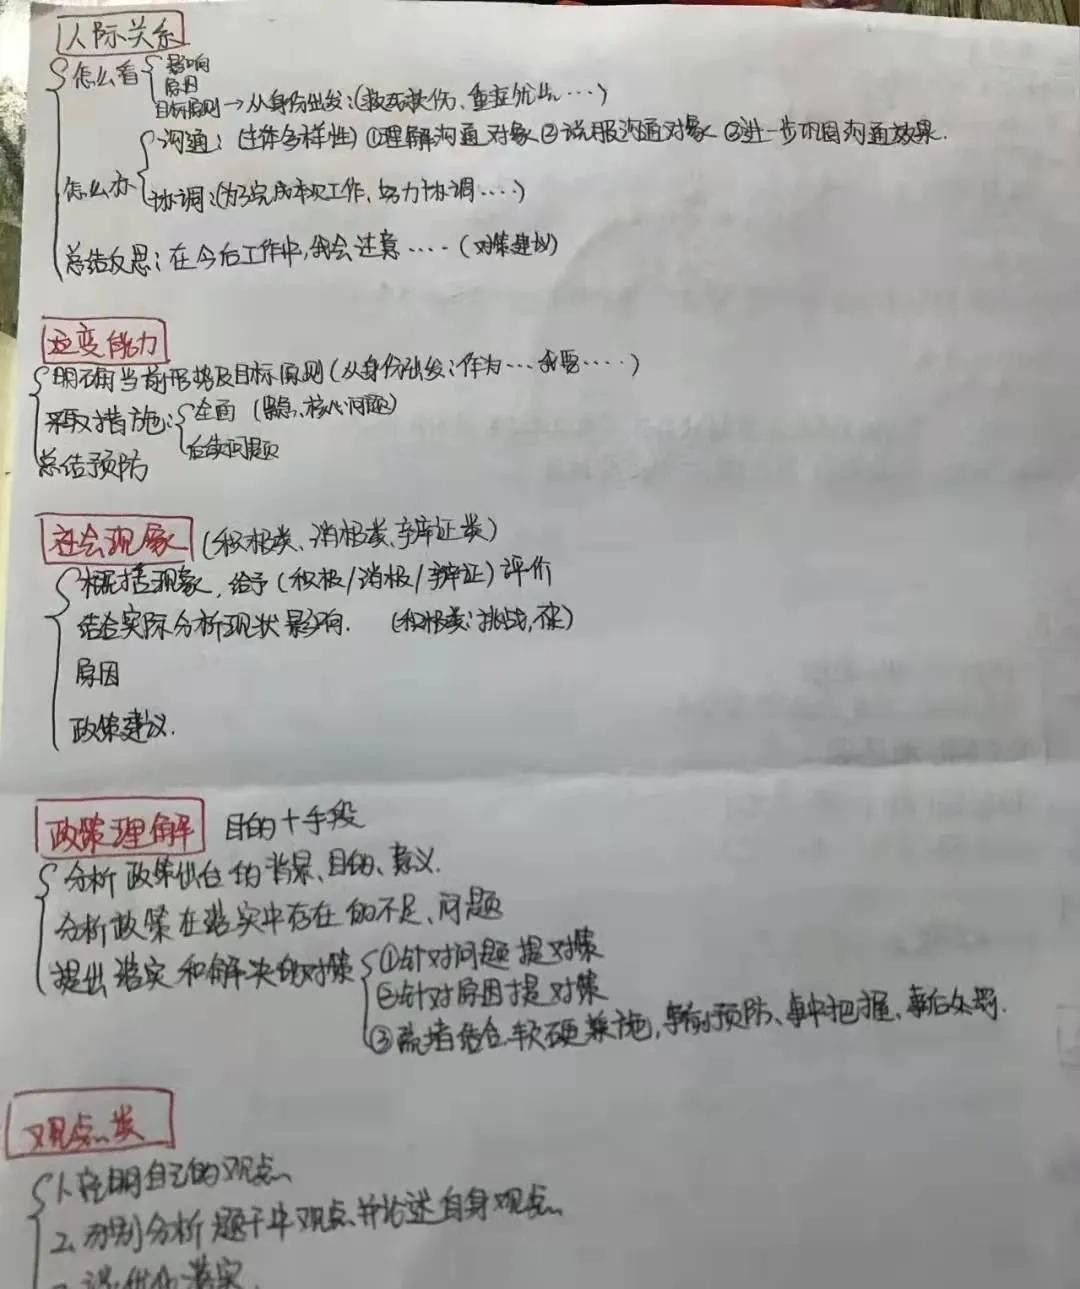 人际关系
怎么看
影响
原因
目标原则→从身份出发:(救死扶伤、重症优先…)
怎么办
沟通:(主体多样性)①理解沟通对象②说服沟通对象③进一步巩固沟通效果.
协调:(为了完成本次工作,努力协调….)
总结反思:在今后工作中,我会注意….(对策建议)
应变能力
明确当前形势及目标原则(从身份出发:作为…我要…..)
采取措施:
全面(紧急、核心问题)
后续问题
总结预防
社会现象(积极类、消极类、辩证类)
概括现象,给予(积极/消极/辩证)评价
结合实际分析现状影响. (积极类:挑战,不足)
原因
政策建议.
政策理解 目的+手段
分析政策出台的背景、目的、意义.
分析政策在落实中存在的不足、问题
提出落实和解决的对策
①针对问题提对策
②针对原因提对策
③疏堵结合,软硬兼施,事前预防、事中把握、事后处罚.
观点类
1、表明自己的观点
2、分别分析题干中观点并论述自身观点
落实.